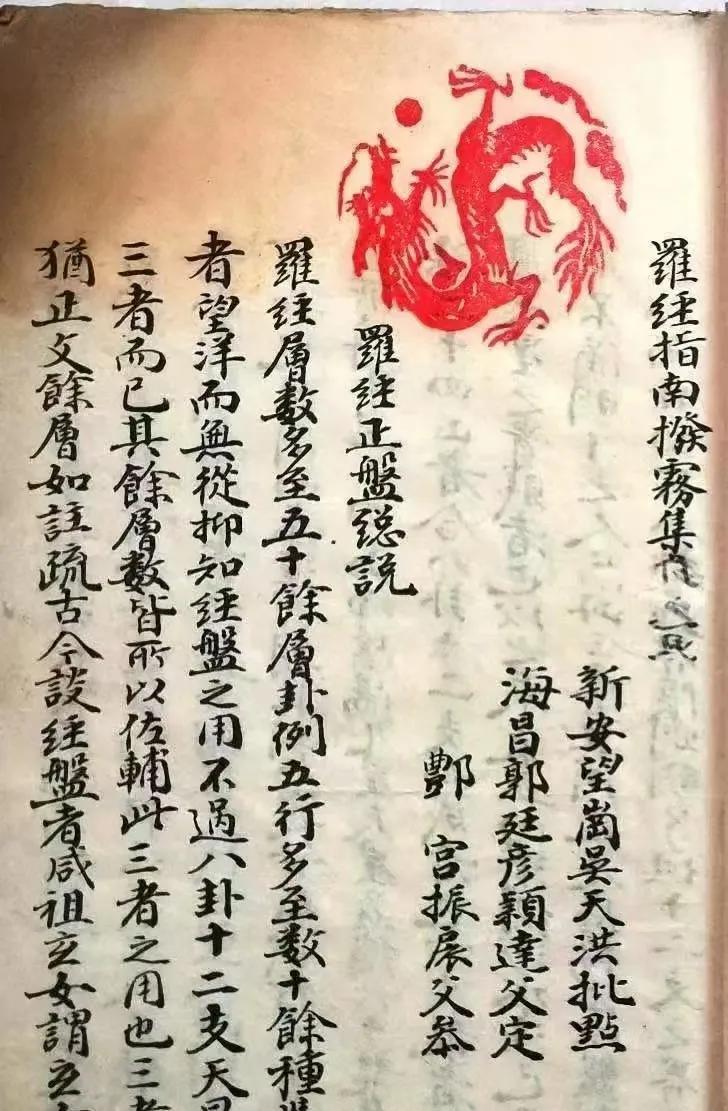 羅经指南撥霧集
新安望崗吳天洪批點
海昌郭廷彦穎達父定
酆 宫振展父叅
羅经正盤總説
羅经層數多至五十餘層卦例五行多至数十餘種
者望洋而無從抑知经盤之用不過八卦十二支天
三者而已其餘層數皆所以佐輔此三者之用也三者
猶正文餘層如註疏古今談经盤者咸祖立如謂立